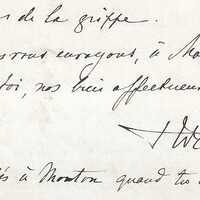 s de la griffe.
s vous envoyons, à Ma
toi, nos bien affectueu
és à Monton quand tu